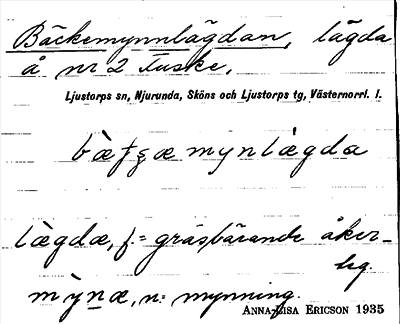 Bäckemynnlägdan, lägda
å nr 2 Fuske.
Ljustorps sn, Njurunda, Sköns och Ljustorps tg, Västernorrl. l.
mynlägda
lägdæ, f. = gräsbärande åker-
mỳnæ, n. = mynning.
ANNA-LISA ERICSON 1935